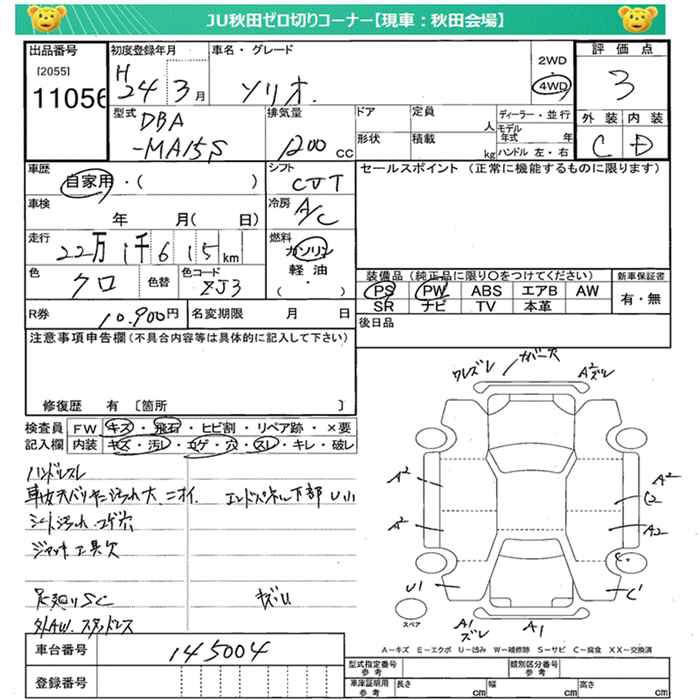 JU秋田ゼロ切りコーナー【現車：秋田会場】
出品番号
[2055]
11056
初度登録年月
H 24年 3月
車名・グレード
ソリオ.
2WD
・
4WD
評価点
3
外装 内装
C D
型式
DBA
-MA15S
排気量
1200 cc
ドア
形状
定員 人
積載 kg
ディーラー・並行
モデル年式 年
ハンドル 左・右
車歴
自家用・( )
シフト
CVT
セールスポイント (正常に機能するものに限ります)
車検
年 月( 日)
冷房
A/C
走行
22万1千615km
燃料
ガソリン
軽油
( ・ )
色
クロ
色替
色コード
ZJ3
装備品(純正品に限り○をつけてください)
PS PW ABS エアB AW
SR ナビ TV 本革
新車保証書
有・無
R券 10.900円
名変期限 月 日
後日品
注意事項申告欄(不具合内容等は具体的に記入して下さい)
修復歴 有 〔箇所 〕
検査員記入欄
FW キズ・飛石・ヒビ割・リペア跡・×要
内装 キズ・汚レ・コゲ・穴・スレ・キレ・破レ
ハンドルスレ
ニオイ. エンドパネル下部U小
シートヨゴレ コゲ穴
ジャッキ工具欠
足廻りSC
外AW. スタッドレス
ワレズレ
A2ズレ
A2
A2
A2
C2
A2
C.
U1
C
スペア
A1ズレ
A1
A－キズ E－エクボ U－凹み W－補修跡 S－サビ C－腐食 XX－交換済
車台番号 145004
登録番号
型式指定番号 参考
類別区分番号 参考
車庫証明用 参考
長さ cm
幅 cm
高さ cm